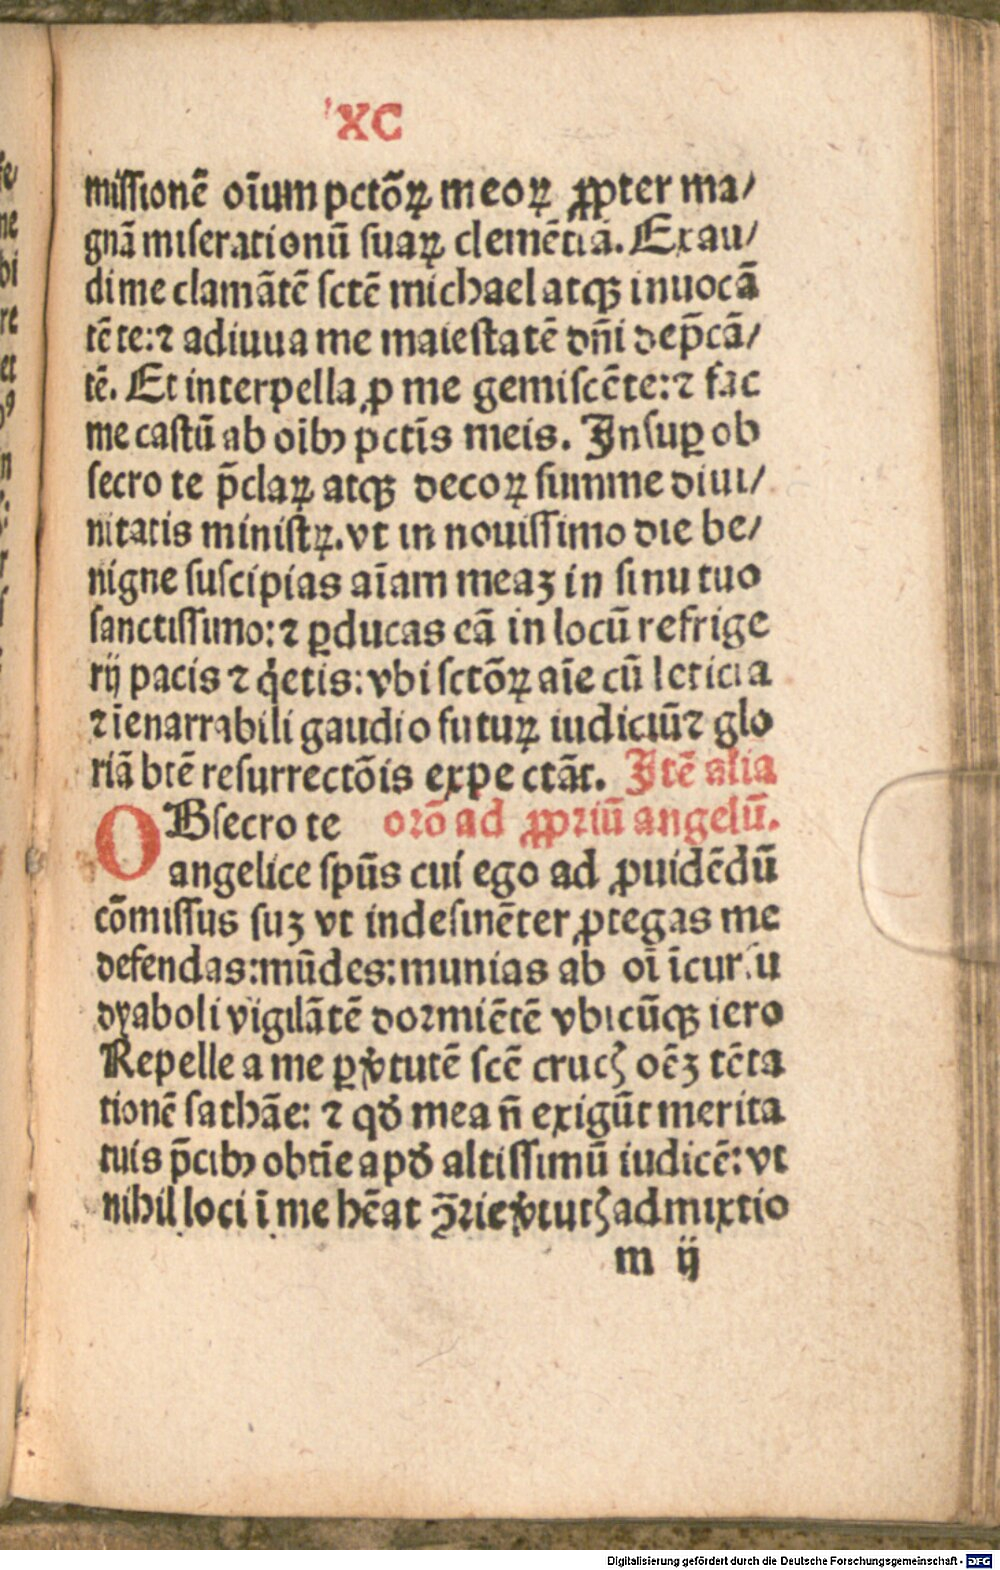 XC
missionē oīum pctōꝝ meoꝝ ꝓpter ma/
gnā miserationū suaꝝ clemētiā. Exau/
di me clamātē sctē michael atqꝫ inuocā
tē te: ⁊ adiuua me maiestatē dn̄i dep̄cā/
tē. Et interpella ꝓ me gemiscēte: ⁊ fac
me castū ab oībꝰ pctīs meis. Insuꝑ ob
secro te p̄claꝝ atqꝫ decoꝝ summe diui/
nitatis ministꝝ. vt in nouissimo die be/
nigne suscipias aīam meaꝫ in sinu tuo
sanctissimo: ⁊ ꝑducas eā in locū refrige
rij pacis ⁊ q̇etis: vbi sctōꝝ aīe cū leticia
⁊ īenarrabili gaudio futuꝝ iudiciū ⁊ glo
riā btē resurrectōis expectāt. Itē alia
OBsecro te orō ad ꝓpriū angelū.
angelice spūs cui ego ad ꝓuidēdū
cōmissus suꝫ vt indesinēter ꝓtegas me
defendas: mūdes: munias ab oī īcursu
dyaboli vigilātē dormiētē vbicūqꝫ iero
Repelle a me ꝑ v̓tutē scē crucꝭ oēꝫ tēta
tionē sathāe: ⁊ qđ mea n̄ exigūt merita
tuis p̄cibꝰ obtīe apđ altissimū iudicē: vt
nihil loci ī me hēat ꝯ̄rie v̓tutꝭ admixtio
m ij
Digitalisierung gefördert durch die Deutsche Forschungsgemeinschaft - DFG